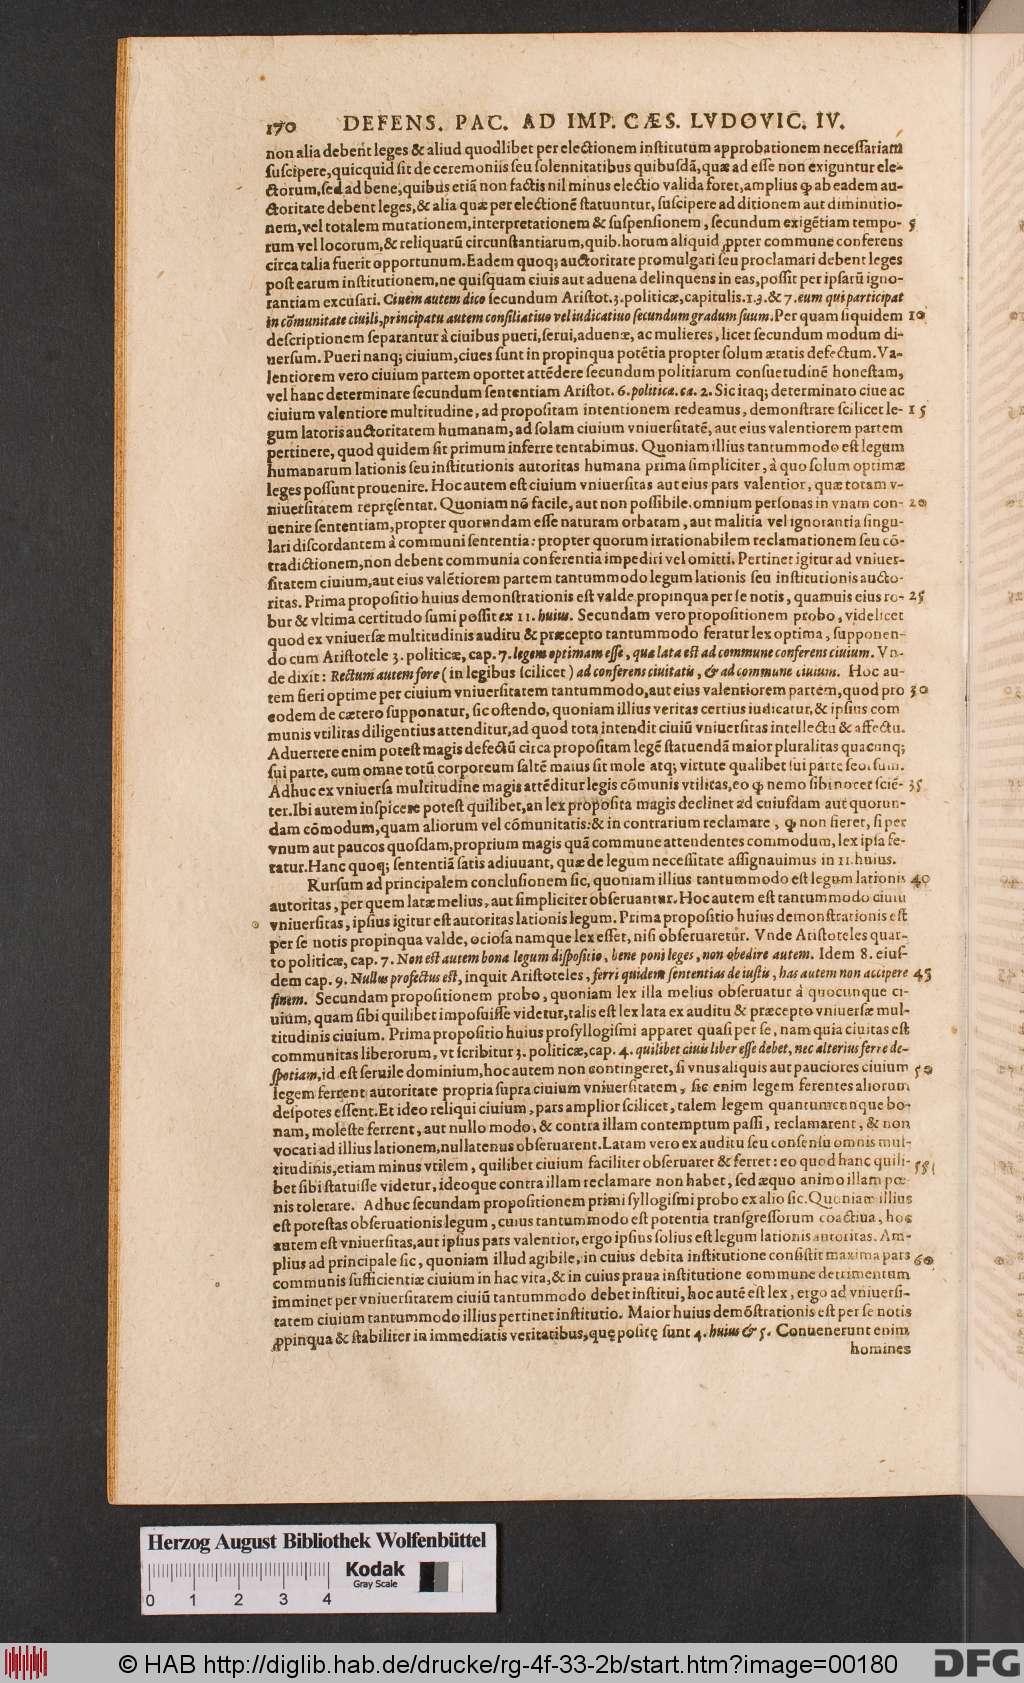 170 DEFENS. PAC. AD IMP. CÆS. LVDOVIC. IV.
non alia debent leges & aliud quodlibet per electionem institutum approbationem necessariam
suscipere, quicquid sit de ceremoniis seu solennitatibus quibusdā, quæ ad esse non exiguntur ele-
ctorum, sed ad bene, quibus etiā non factis nil minus electio valida foret, amplius ꝙ ab eadem au-
ctoritate debent leges, & alia quæ per electionē statuuntur, suscipere ad ditionem aut diminutio-
nem, vel totalem mutationem, interpretationem & suspensionem, secundum exigētiam tempo- 5
rum vel locorum, & reliquarū circunstantiarum, quib. horum aliquid ꝓpter commune conferens
circa talia fuerit opportunum. Eadem quoq; auctoritate promulgari seu proclamari debent leges
post earum institutionem, ne quisquam ciuis aut aduena delinquens in eas, possit per ipsarū igno-
rantiam excusari. Ciuem autem dico secundum Aristot. 3. politicæ, capitulis. 1. 3. & 7. eum qui participat
in cōmunitate ciuili, principatu autem consiliatiuo vel iudicatiuo secundum gradum suum. Per quam siquidem 10
descriptionem separantur à ciuibus pueri, serui, aduenæ, ac mulieres, licet secundum modum di-
uersum. Pueri nanq; ciuium, ciues sunt in propinqua potētia propter solum ætatis defectum. Va-
lentiorem vero ciuium partem oportet attēdere secundum politiarum consuetudinē honestam,
vel hanc determinare secundum sententiam Aristot. 6. politicæ. ca. 2. Sic itaq; determinato ciue ac
ciuium valentiore multitudine, ad propositam intentionem redeamus, demonstrare scilicet le- 15
gum latoris auctoritatem humanam, ad solam ciuium vniuersitatē, aut eius valentiorem partem
pertinere, quod quidem sit primum inferre tentabimus. Quoniam illius tantummodo est legum
humanarum lationis seu institutionis autoritas humana prima simpliciter, à quo solum optimæ
leges possunt prouenire. Hoc autem est ciuium vniuersitas aut eius pars valentior, quæ totam v-
niuersitatem repręsentat. Quoniam nō facile, aut non possibile. omnium personas in vnam con- 20
uenire sententiam, propter quorundam esse naturam orbatam, aut malitia vel ignorantia singu-
lari discordantem à communi sententia: propter quorum irrationabilem reclamationem seu cō-
tradictionem, non debent communia conferentia impediri vel omitti. Pertinet igitur ad vniuer-
sitatem ciuium, aut eius valētiorem partem tantummodo legum lationis seu institutionis aucto-
ritas. Prima propositio huius demonstrationis est valde propinqua per se notis, quamuis eius ro- 25
bur & vltima certitudo sumi possit ex 11. huius. Secundam vero propositionem probo, videlicet
quod ex vniuersæ multitudinis auditu & præcepto tantummodo feratur lex optima, supponen-
do cum Aristotele 3. politicæ, cap. 7. legem optimam esse, quæ lata est ad commune conferens ciuium. Vn-
de dixit: Rectum autem fore (in legibus scilicet) ad conferens ciuitatis, & ad commune ciuium. Hoc au-
tem fieri optime per ciuium vniuersitatem tantummodo, aut eius valentiorem partem, quod pro 30
eodem de cætero supponatur, sic ostendo, quoniam illius veritas certius iudicatur, & ipsius com
munis vtilitas diligentius attenditur, ad quod tota intendit ciuiū vniuersitas intellectu & affectu.
Aduertere enim potest magis defectū circa propositam legē statuendā maior pluralitas quacunq;
sui parte, cum omne totū corporeum saltē maius sit mole atq; virtute qualibet sui parte seorsum.
Adhuc ex vniuersa multitudine magis attēditur legis cōmunis vtilitas, eo ꝙ nemo sibi nocet sciē- 35
ter. Ibi autem inspicere potest quilibet, an lex proposita magis declinet ad cuiusdam aut quorun-
dam cōmodum, quam aliorum vel cōmunitatis: & in contrarium reclamare, ꝙ non fieret, si per
vnum aut paucos quosdam, proprium magis quā commune attendentes commodum, lex ipsa fe-
ratur. Hanc quoq; sententiā satis adiuuant, quæ de legum necessitate assignauimus in 11. huius.
Rursum ad principalem conclusionem sic, quoniam illius tantummodo est legum lationis 40
autoritas, per quem latæ melius, aut simpliciter obseruantur. Hoc autem est tantummodo ciuiū
vniuersitas, ipsius igitur est autoritas lationis legum. Prima propositio huius demonstrationis est
per se notis propinqua valde, ociosa namque lex esset, nisi obseruaretur. Vnde Aristoteles quar-
to politicæ, cap. 7. Non est autem bona legum dispositio, bene poni leges, non obedire autem. Idem 8. eius-
dem cap. 9. Nullus profectus est, inquit Aristoteles, ferri quidem sententias de iustis, has autem non accipere 45
finem. Secundam propositionem probo, quoniam lex illa melius obseruatur à quocunque ci-
uium, quam sibi quilibet imposuisse videtur, talis est lex lata ex auditu & præcepto vniuersæ mul-
titudinis ciuium. Prima propositio huius prosyllogismi apparet quasi per se, nam quia ciuitas est
communitas liberorum, vt scribitur 3. politicæ, cap. 4. quilibet ciuis liber esse debet, nec alterius ferre de-
spotiam, id est seruile dominium, hoc autem non contingeret, si vnus aliquis aut pauciores ciuium 50
legem ferrent autoritate propria supra ciuium vniuersitatem, sic enim legem ferentes aliorum
despotes essent. Et ideo reliqui ciuium, pars amplior scilicet, talem legem quantumcunque bo-
nam, moleste ferrent, aut nullo modo, & contra illam contemptum passi, reclamarent, & non
vocati ad illius lationem, nullatenus obseruarent. Latam vero ex auditu seu consensu omnis mul-
titudinis, etiam minus vtilem, quilibet ciuium faciliter obseruaret & ferret: eo quod hanc quili- 55
bet sibi statuisse videtur, ideoque contra illam reclamare non habet, sed æquo animo illam pœ-
nis tolerare. Adhuc secundam propositionem primi syllogismi probo ex alio sic. Quoniam illius
est potestas obseruationis legum, cuius tantummodo est potentia transgressorum coactiua, hoc
autem est vniuersitas, aut ipsius pars valentior, ergo ipsius solius est legum lationis autoritas. Am-
plius ad principale sic, quoniam illud agibile, in cuius debita institutione consistit maxima pars 60
communis sufficientiæ ciuium in hac vita, & in cuius praua institutione commune detrimentum
imminet per vniuersitatem ciuiū tantummodo debet institui, hoc autē est lex, ergo ad vniuersi-
tatem ciuium tantummodo illius pertinet institutio. Maior huius demōstrationis est per se notis
ꝓpinqua & stabiliter in immediatis veritatibus, quę positę sunt 4. huius & 5. Conuenerunt enim
homines
Herzog August Bibliothek Wolfenbüttel
Kodak
Gray Scale
0 1 2 3 4
© HAB http://diglib.hab.de/drucke/rg-4f-33-2b/start.htm?image=00180
DFG